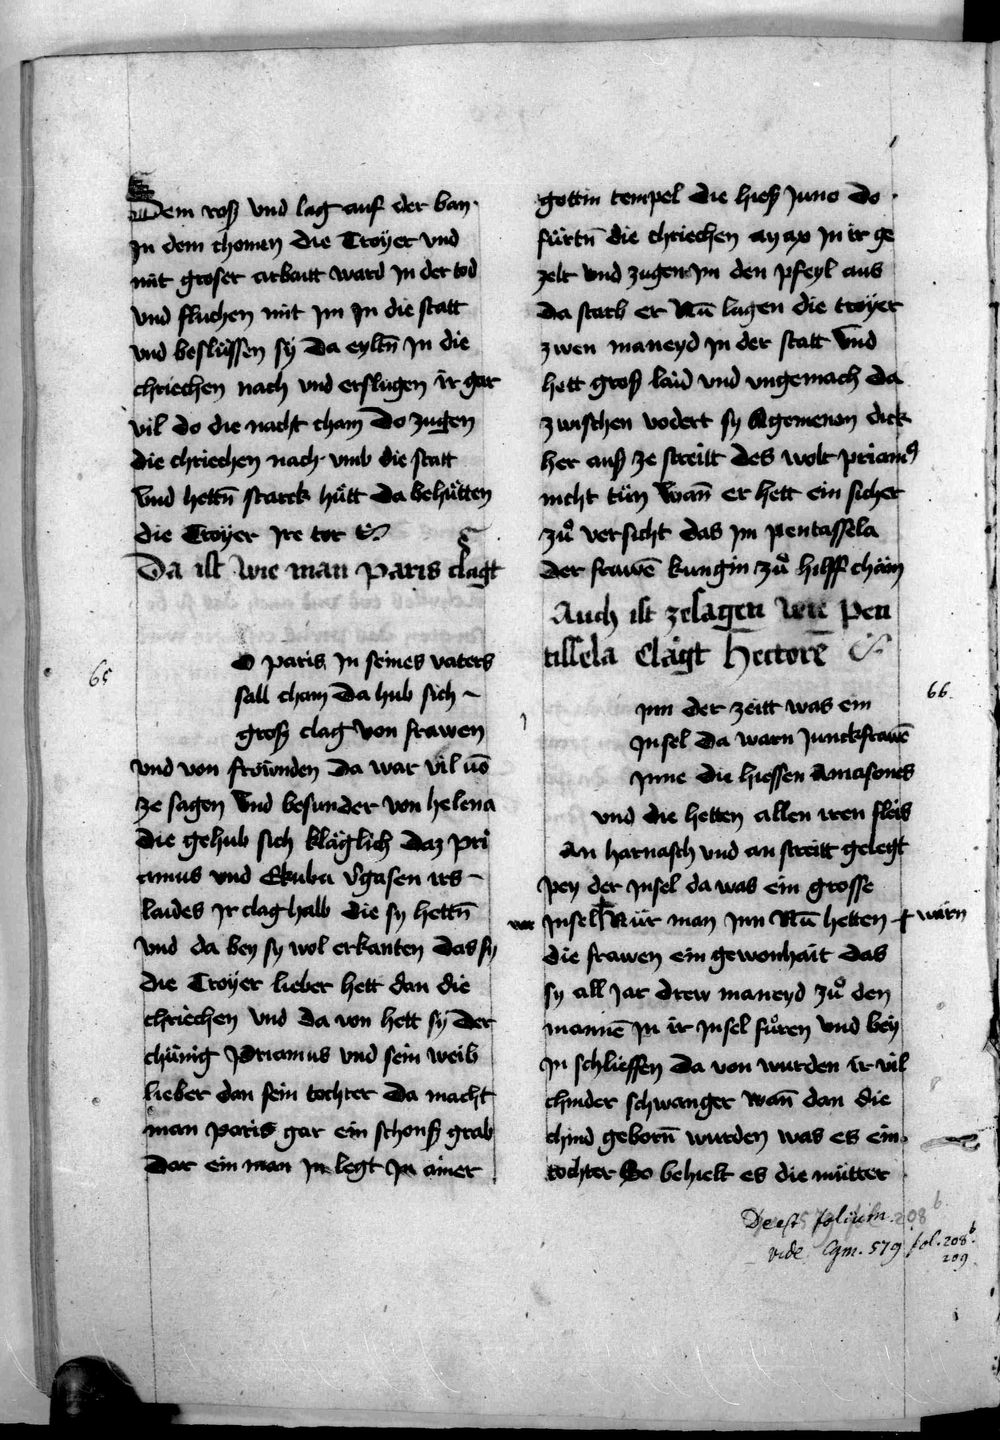 Dem roß vnd lag auf der ban
In dem chomen die Troyer vnd
mit groser arbaitt ward In der tod
vnd fluchen mit Im In die statt
vnd beslüssen sy Da eyltn̄ In die
chriechen nach vnd erslugen ir gar
vil do die nacht cham Do zugen
die chriechen nach vmb die statt
vnd hettn̄ starck hütt da behütten
die Troyer Ire tor
Da ist wie man paris clagt
65
O paris In seines vaters
sall cham Da hub sich
groß clag von frawen
vnd von fröwnden Da war vil vō
ze sagen vnd besunder von helena
die gehub sich kläglich daz pri
amus vnd Ekuba vgasen irs
laides Ir clag halb die sy hettn̄
vnd da bey sy wol erkanten das sy
die Troyer lieber hett dan die
chriechen vnd da von hett sy der
chünig priamus vnd sein weib
lieber dan sein tochter Da macht
man paris gar ein schonß grab
Dar ein man In legt In ainer
gottin tempel die hieß Juno do
fürtn̄ die chriechen ayax In ir ge
zelt vnd zugen Im den pfeyl aus
da starb er Nū lagen die troyer
zwen maneyd In der statt vnd
hett groß laid vnd vngemach da
zwischen vodert sy Agomenon dick
her auß ze streitt des wolt priamꝰ
nicht tün wan̄ er hett ein sicher
zů versicht das Im pentassela
der frawē kungin zů hilff chäm
Auch ist zesagen wie Pen
tissela Clägt hectorē
66.
Inn der zeitt was ein
Insel da warn Junckfrawē
Inne die hiessen Amasones
vnd die hetten allen iren fleis
An harnasch vnd an streitt gelegt
pey der Insel da was ein grosse
Insel Nür man Inn Nū hetten ✝ wärn
die frawen ein gewonhait das
sy all Jar drew maneyd zů den
mannē In ir Insel fůren vnd bey
In schlieffen Da von wurden ir vil
chinder schwanger wan̄ dan die
chind geborn̄ wurden was es ein
tochter So behielt es die mütter
Deest folium 208 b.
vide Cgm. 579 fol. 208 b.
209